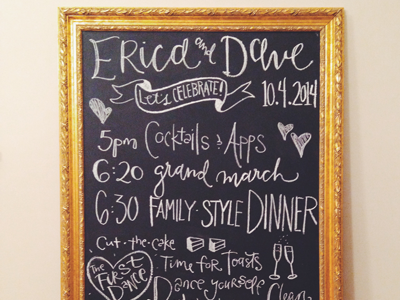 Erica and Dave
Let's CELEBRATE!
10.4.2014
5pm Cocktails & Apps
6:20 grand march
6:30 FAMILY-STYLE DINNER
Cut-the-cake
Time for Toasts
The FIRST DANCE
Dance yourself
Clean